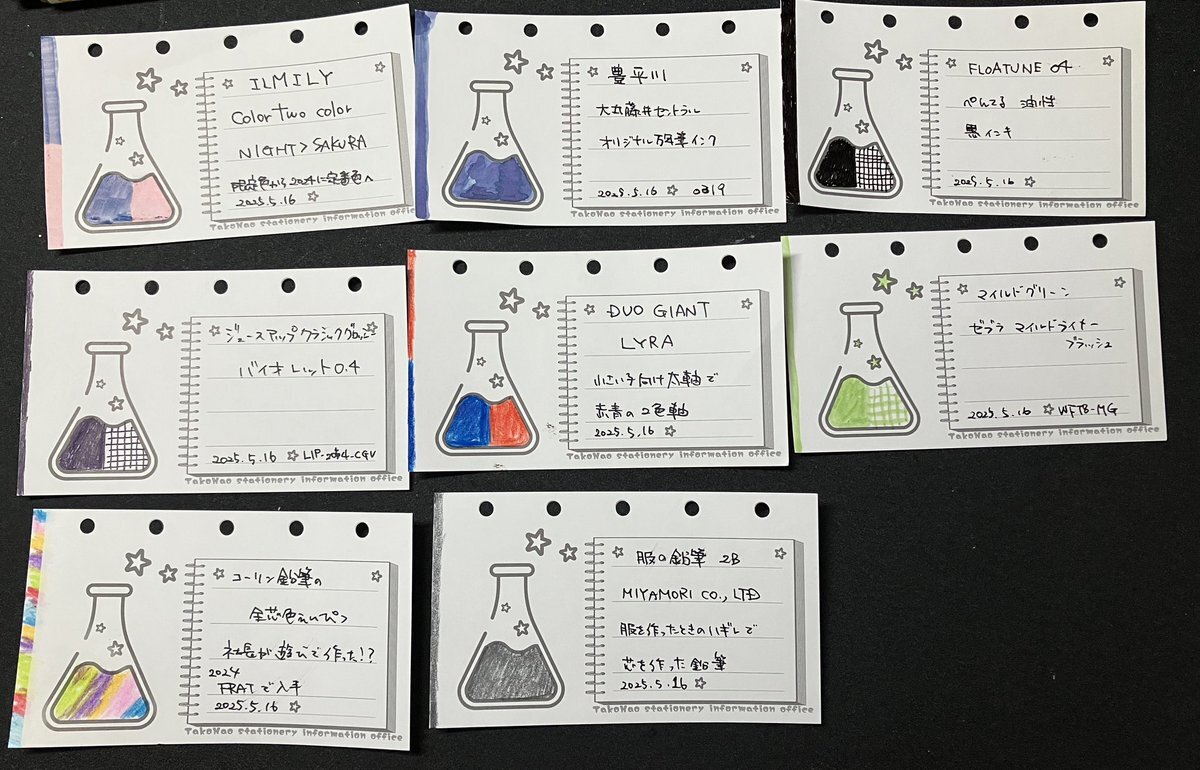 ILMILY
Color Two color
NIGHT > SAKURA
限定色から2024に定番色へ
2025.5.16
豊平川
大丸藤井セントラル
オリジナル万年筆インク
2025.5.16 0319
TakoNao stationery information office
FLOATUNE 04
ぺんてる 油性
黒インキ
2025.5.16
TakoNao stationery information office
ジュースアップクラシックグロッシー
バイオレット0.4
2025.5.16
TakoNao stationery information office
DUO GIANT
LYRA
小さい子向け太軸で
赤青の2色軸
2025.5.16
TakoNao stationery information office
マイルドグリーン
ゼブラ マイルドライナー
ブラッシュ
2025.5.16 WFT8-MG
TakoNao stationery information office
コーリン鉛筆の
全芯色えんぴつ
社長が遊びで作った!?
2024
TRATで入手
2025.5.16
TakoNao stationery information office
服の鉛筆 2B
MIYAMORI CO., LTD
服を作ったときのハギレで
芯を作った鉛筆
2025.5.16
TakoNao stationery information office